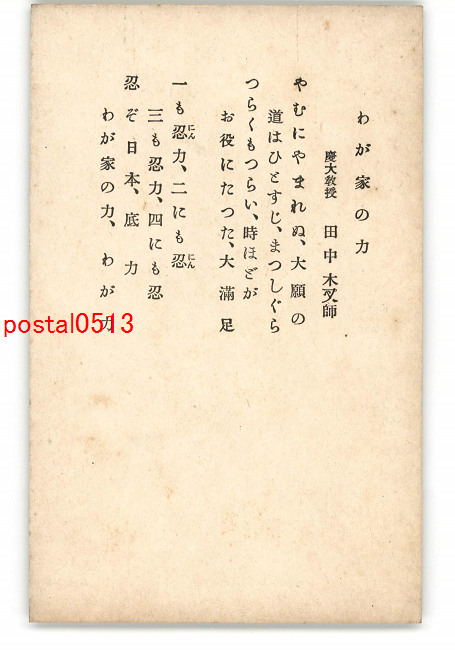 わが家の力
慶大教授 田中木叉師
やむにやまれぬ、大願の
道はひとすじ、まつしぐら
つらくもつらい、時ほどが
お役にたつた、大満足
一も忍力、二にも忍
三も忍力、四にも忍
忍ぞ日本、底力
わが家の力、わが力
postal0513